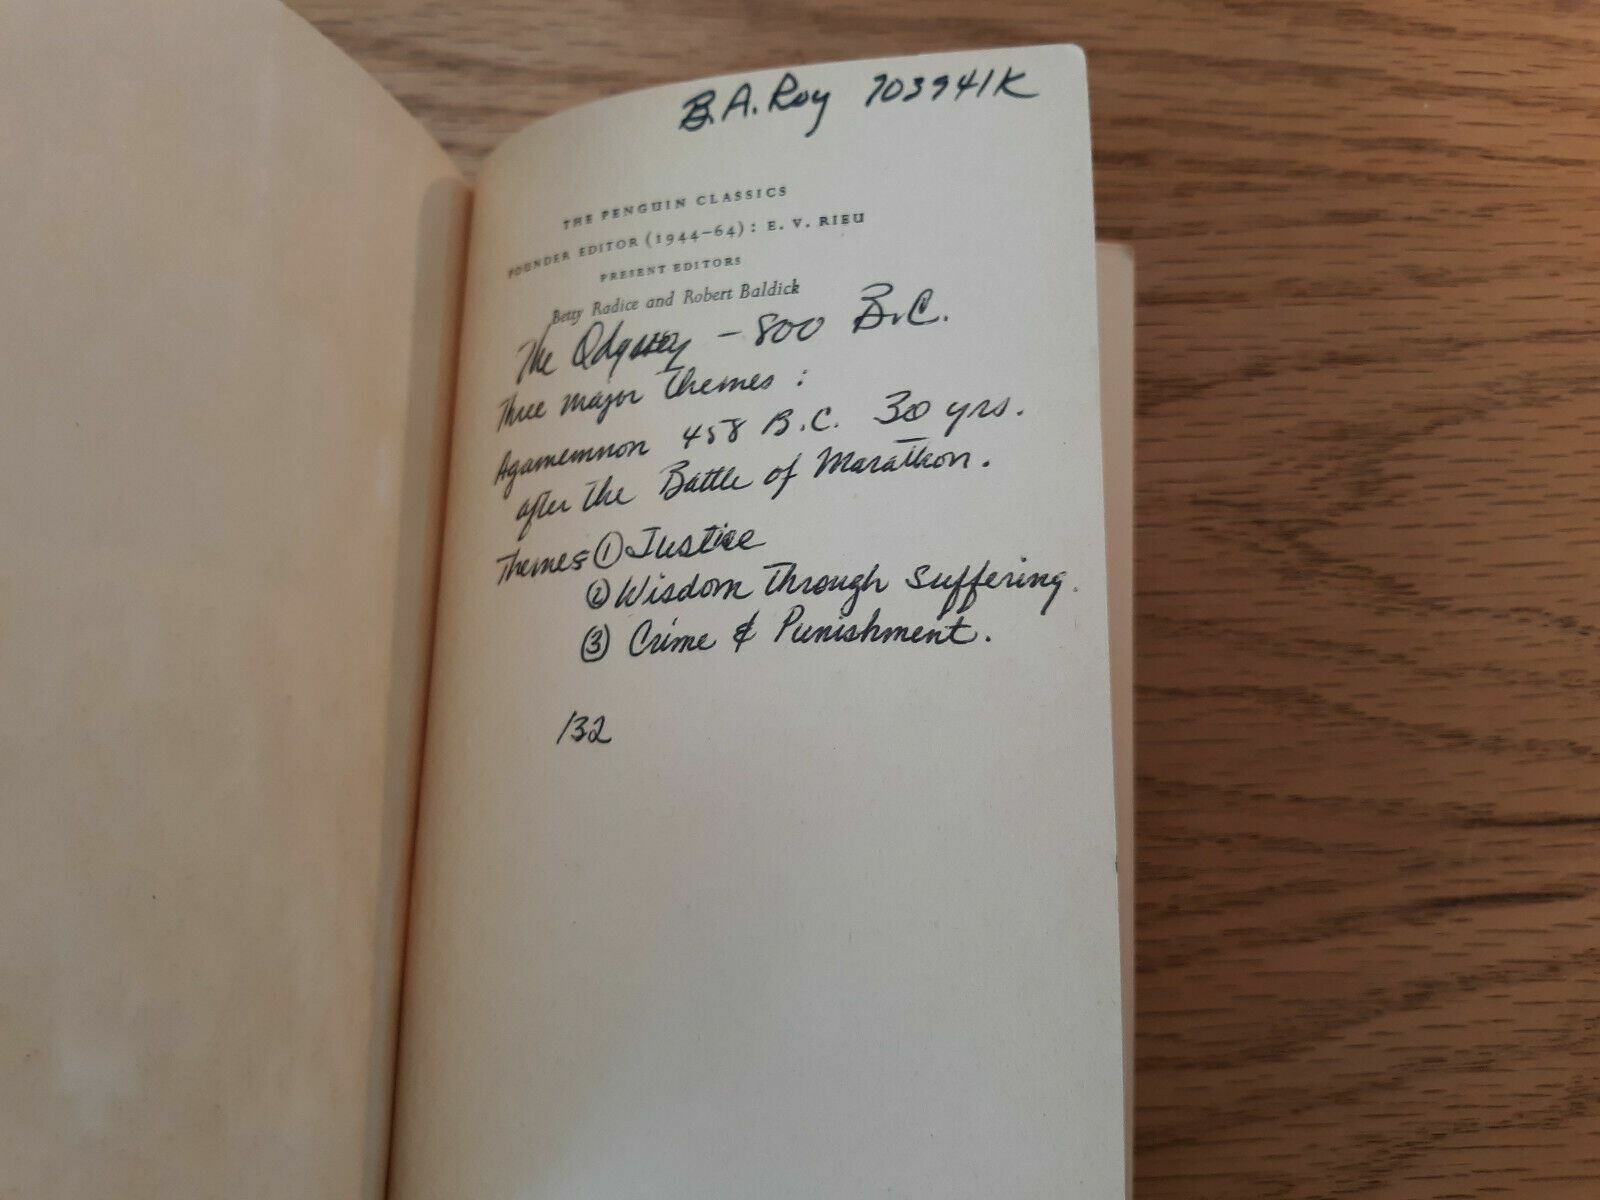 B. A. Roy 703941K
THE PENGUIN CLASSICS
FOUNDER EDITOR (1944–64): E. V. RIEU
PRESENT EDITORS
Betty Radice and Robert Baldick
The Odyssey – 800 B.C.
Three major themes :
Agamemnon 458 B.C. 30 yrs.
after the Battle of Marathon.
Themes ① Justice
② Wisdom through suffering.
③ Crime & Punishment.
132